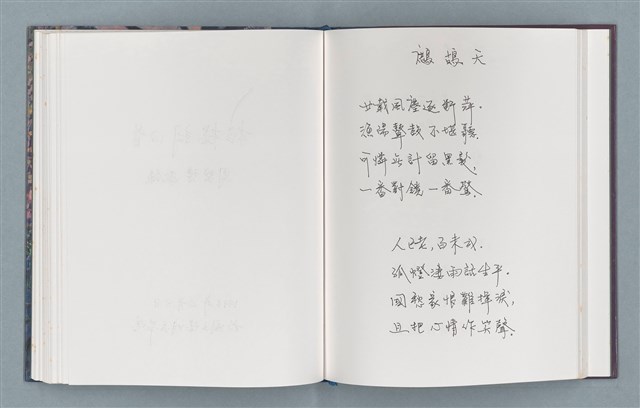 鷓鴣天
廿載風塵逐斷萍.
漁陽鼙鼓不堪聽.
可憐無計留黑髮,
一番對鏡一番驚.
人已老,百未成.
孤燈淒雨話生平.
國愁家恨難揮淚,
且把心情作笑聲.